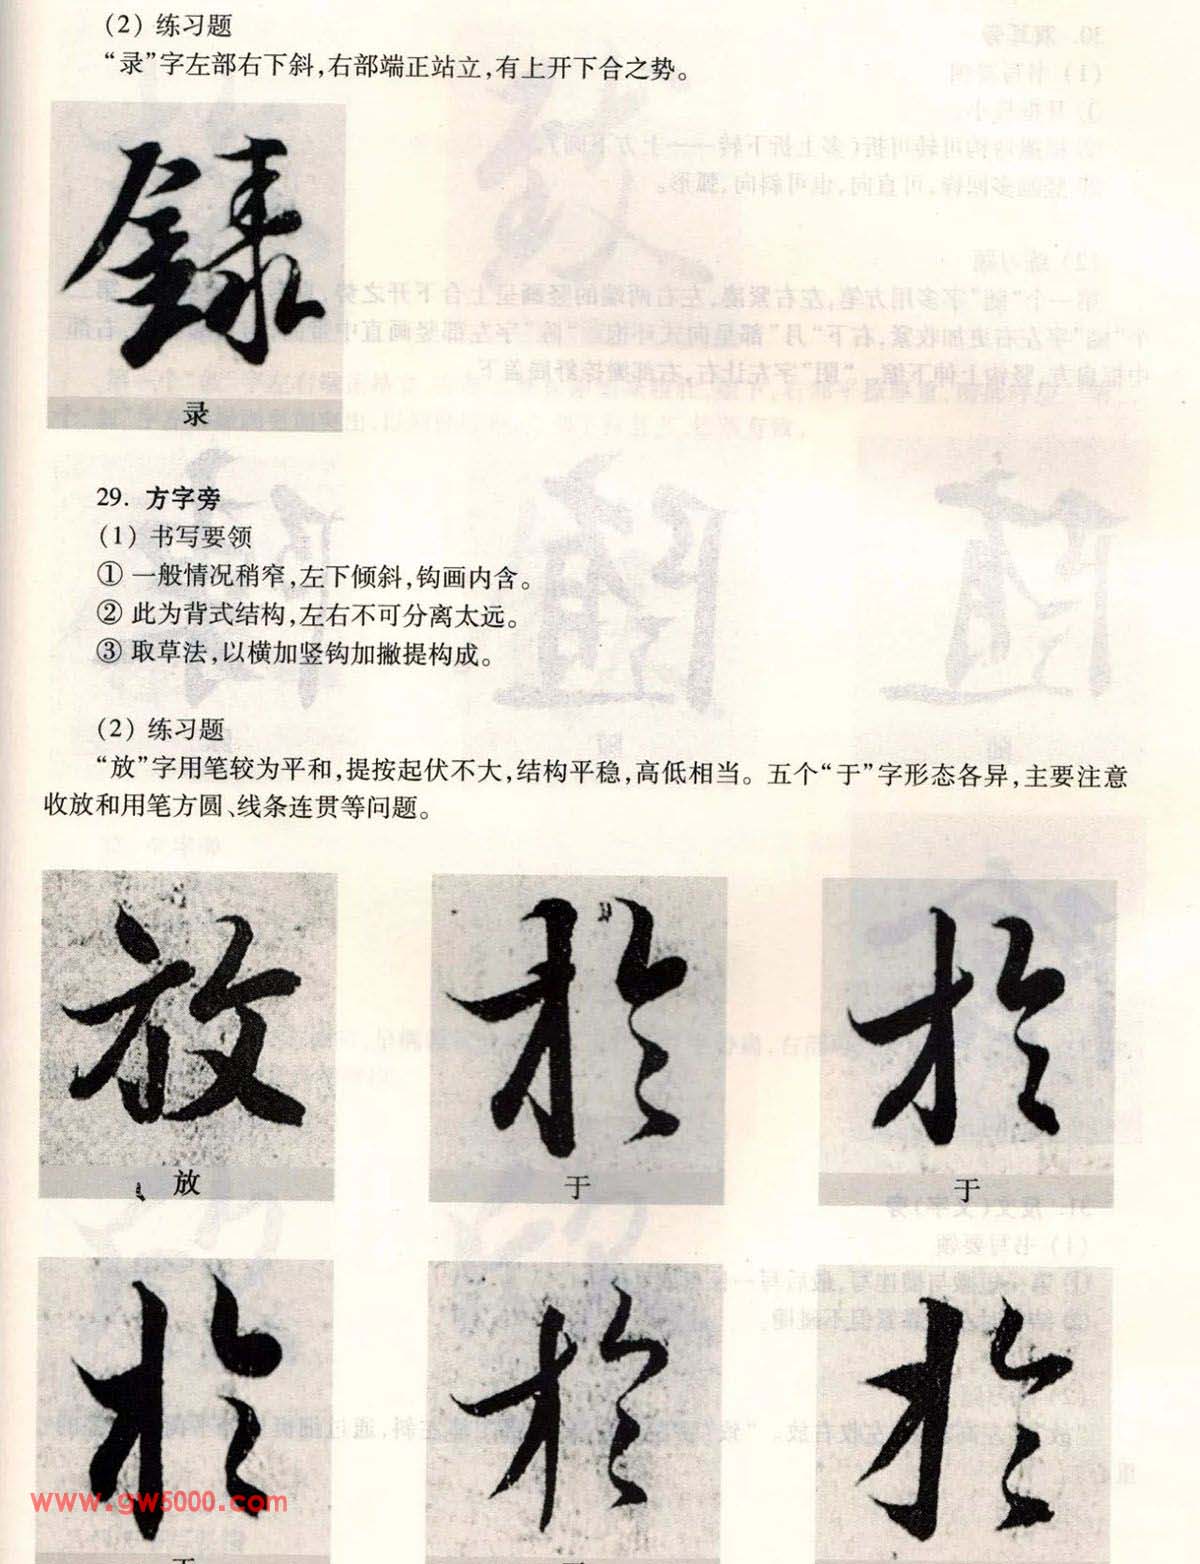 (2) 练习题
“录”字左部右下斜,右部端正站立,有上开下合之势。
錄
录
29. 方字旁
(1) 书写要领
① 一般情况稍窄,左下倾斜,钩画内含。
② 此为背式结构,左右不可分离太远。
③ 取草法,以横加竖钩加撇提构成。
(2) 练习题
“放”字用笔较为平和,提按起伏不大,结构平稳,高低相当。五个“于”字形态各异,主要注意
收放和用笔方圆、线条连贯等问题。
放 於 於
放 于 于
於 於 於
www.gw5000.com